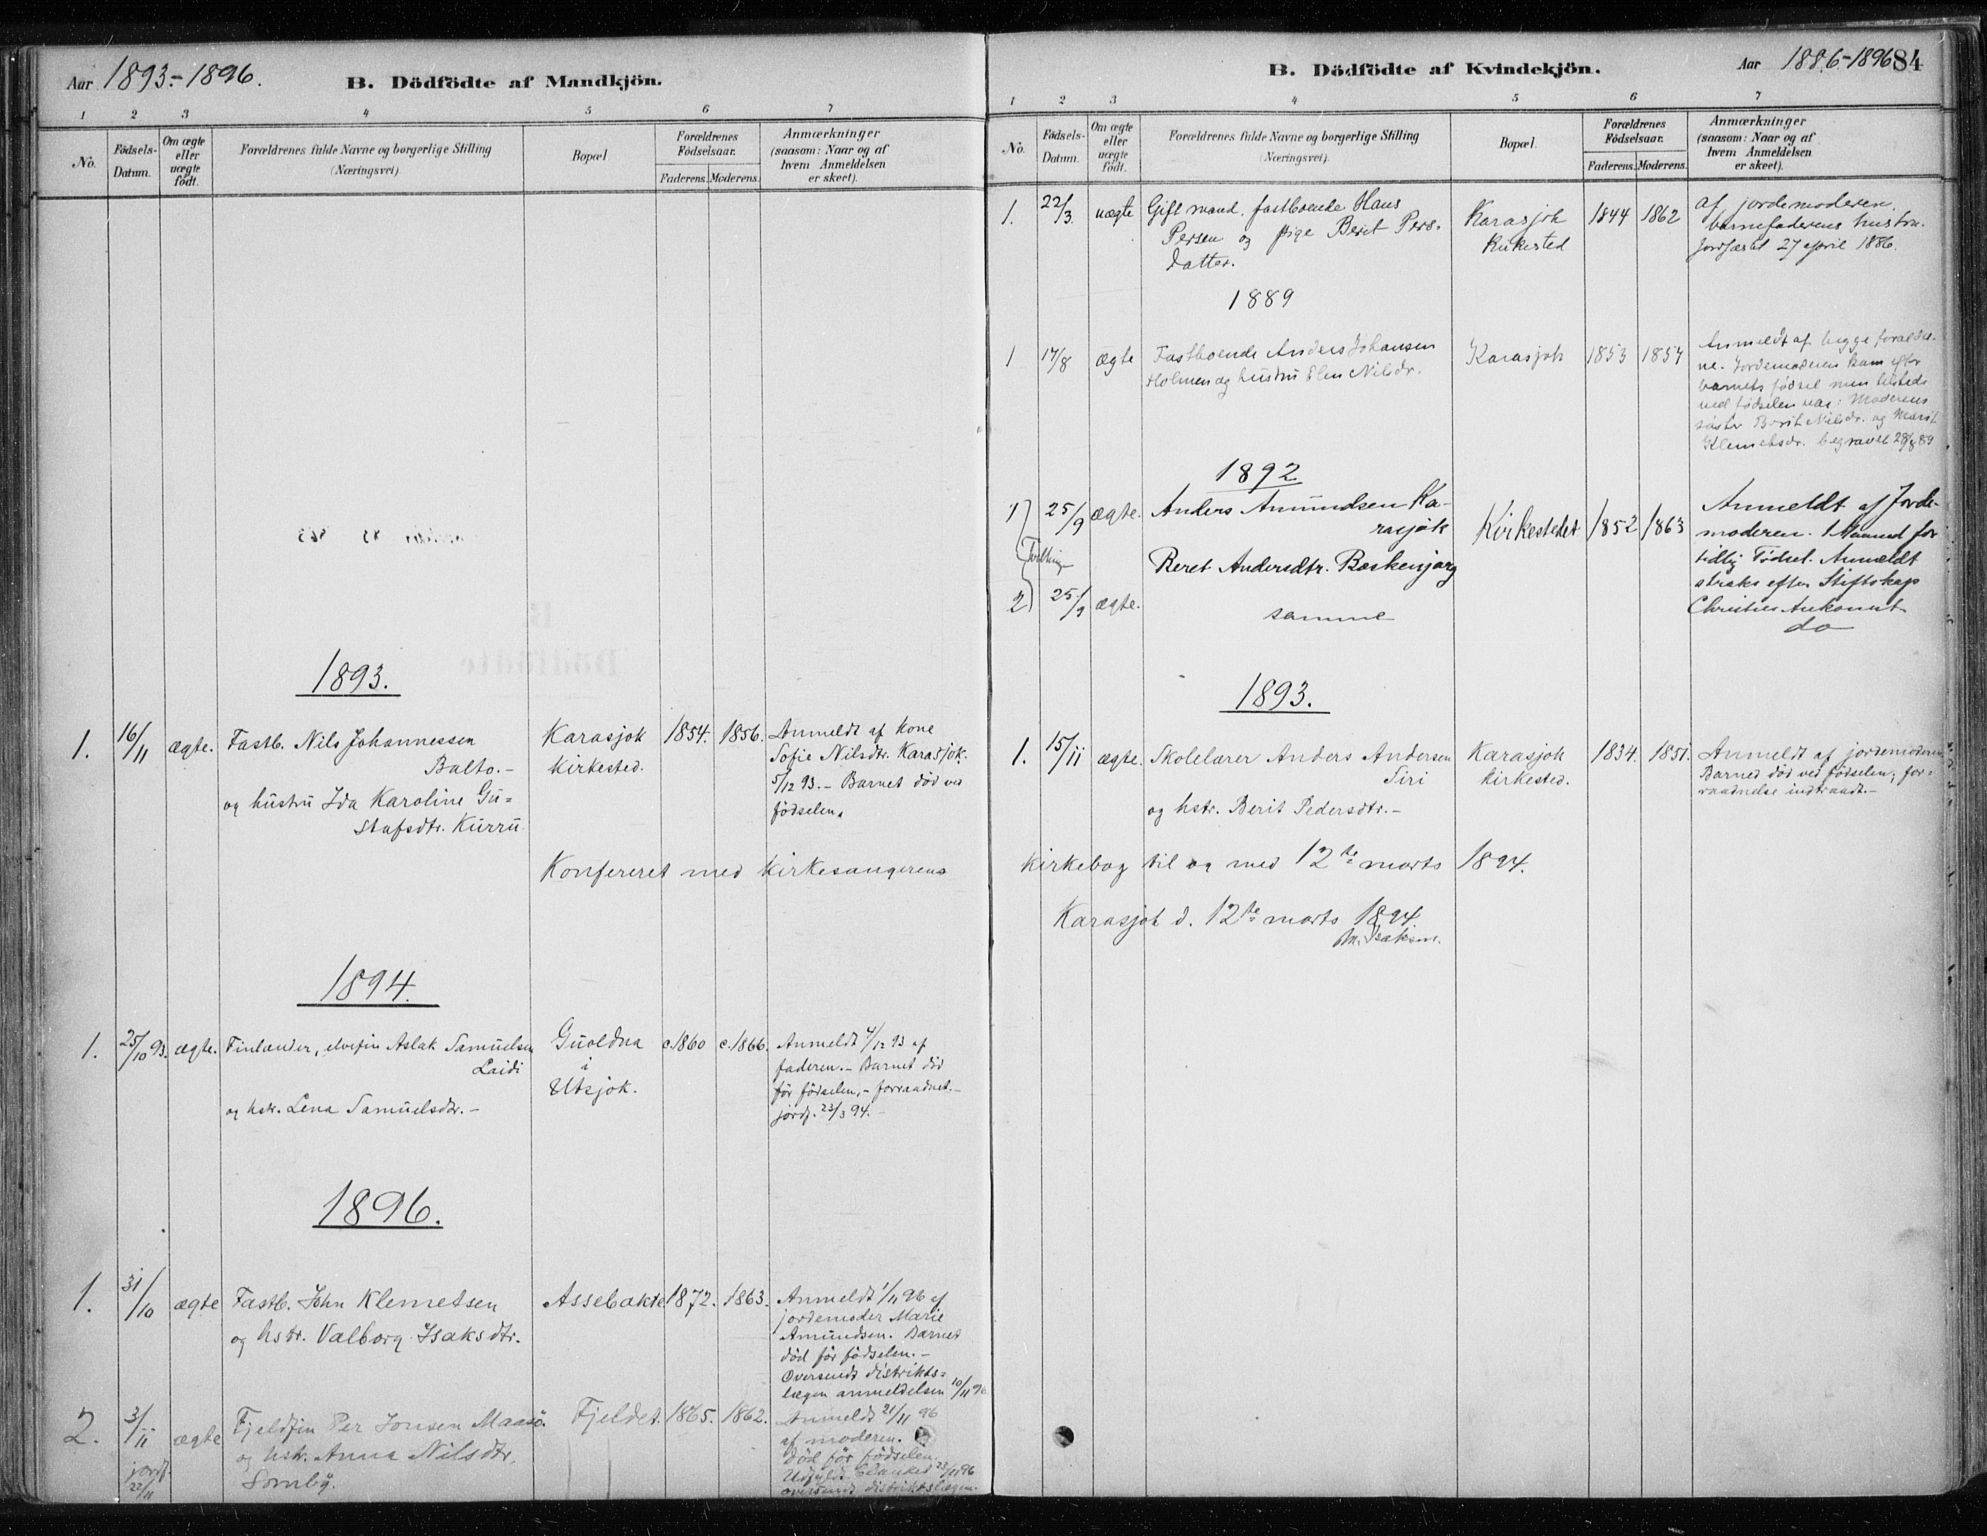 Aar 1893-1896.
B. Dödfödte af Mandkjön.
1 2 3 4 5 6 7
No.
Fødsels-
Datum.
Om ægte
eller
uægte
født.
Forældrenes fulde Navne og borgerlige Stilling
(Næringsvei).
Bopæl
Forældrenes
Fødselsaar.
Faderens. Moderens.
Anmærkninger
(saasom: Naar og af
hvem Anmeldelsen
er skeet).
1893.
1. 16/11 ægte. Fastb. Nils Johannessen
Balto.-
og hustru Ida Karoline Gu=
stafsdtr. Kurru.
Karasjok
Kirkested.
1854. 1856.
Anmeldt af kone
Sofie Nilsdtr. Karasjok.
5/12 93. - Barnet død ved
fødselen.
Konfereret med kirkesangerens
1894.
1. 25/10 93. ægte. Finlænder, elvefin Aslak Samuelsen
Laidi
og hstr. Lena Samuelsdtr. -
Guoldna
i
Utsjok.
c.1860 c.1866.
Anmeldt 4/12 93 af
faderen. - Barnet død
før fødselen, - forraadnet. -
jordf. 23/3 94. -
1896.
1. 31/10 ægte Fastb. John Klemetsen
og hstr. Valborg Isaksdtr.
Assebakte 1872. 1863.
Anmeldt 1/11 96 af
jordemoder Marie
Amundsen. Barnet
død før fødselen. -
Oversendt distrikts=
lægen anmeldelsen 10/11 96.
2. 3/11 ægte
jordf.
22/11
Fjeldfin Per Jonsen Maasø.
og hstr. Anna Nilsdtr.
Somby.
Fjeldet. 1865. 1862.
Anmeldt 21/11 96
af moderen.
Død før fødselen.
Udfyldt blanket 23/11 96
oversendt distriktslægen.
B. Dödfödte af Kvindekjön.
Aar 1886-1896
84
1 2 3 4 5 6 7
No.
Fødsels-
Datum.
Om ægte
eller
uægte
født.
Forældrenes fulde Navne og borgerlige Stilling
(Næringsvei).
Bopæl.
Forældrenes
Fødselsaar.
Faderens. Moderens.
Anmærkninger
(saasom: Naar og af
hvem Anmeldelsen
er skeet).
1. 22/3. uægte Gift mand, fastboende Hans
Persen og pige Berit Pers-
datter.
Karasjok
Kirkested
1844 1862
af jordemoderen,
barnefaderens hustru.
Jordfæstet 27 april 1886.
1889
1 17/8 ægte Fastboende Anders Johansen
Holmen og hustru Elen Nilsdr.
Karasjok 1853 1857
Anmeldt af begge forældre-
ne. Jordemoderen kom efter
barnets fødsel men tilstede
ved fødselen var: Moderens
søster Berit Nilsdr. og Marit
Klemetsdr. begravet 28/8 89
1892
1) 25/9 ægte. Anders Amundsen Ka-
rasjok
Tvillinger
Beret Andersdtr. Baskenjarg
Kirkestedet 1852 1863
Anmeldt af Jorde-
moderen. 1 Maaned for
tidlig Fødsel. Anmeldt
straks efter Stiftskap
Christies Ankomst
2) 25/9 ægte. samme
do
1893.
1. 15/11 ægte. Skolelærer Anders Andersen
Siri
og hstr. Berit Pedersdtr. -
Karasjok
kirkested.
1834. 1851.
Anmeldt af jordemoderen
Barnet død ved fødselen; for=
raadnelse indtraadt. -
kirkebog til og med 12te marts 1894.
Karasjok d. 12te marts 1894.
M. Isaksen.